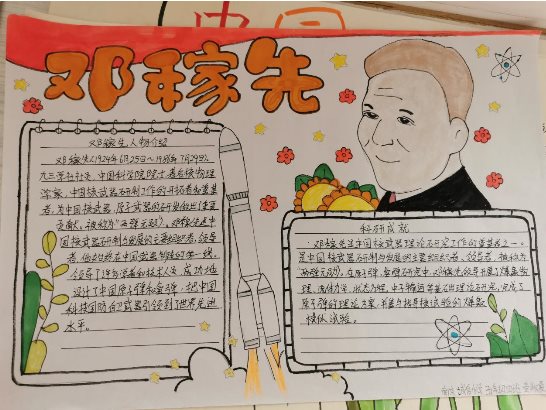 中国
邓稼先
邓稼先人物介绍
邓稼先(1924年6月25日~1986年7月29日),
九三学社社员,中国科学院院士,著名核物理
学家,中国核武器研制工作的开拓者和奠基
者,为中国核武器、原子武器的研发做出了重要
贡献,被称为"两弹元勋"。邓稼先是中
国核武器研制与发展的主要组织者,领导
者,他始终在中国武器制造的第一线,
领导了许多学者和技术人员,成功地
设计了中国原子弹和氢弹,把中国
科技国防自卫武器引领到了世界先进
水平。
科研成就
邓稼先是中国核武器理论研究工作的奠基者之一。
是中国核武器研制与发展的主要组织者、领导者,被称为
"两弹元勋"。在原子弹、氢弹研究中,邓稼先领导开展了爆轰物
理、流体力学、状态方程、中子输运等基础理论研究,完成了
原子弹的理论方案,并参与指导核试验的爆轰
模拟试验。